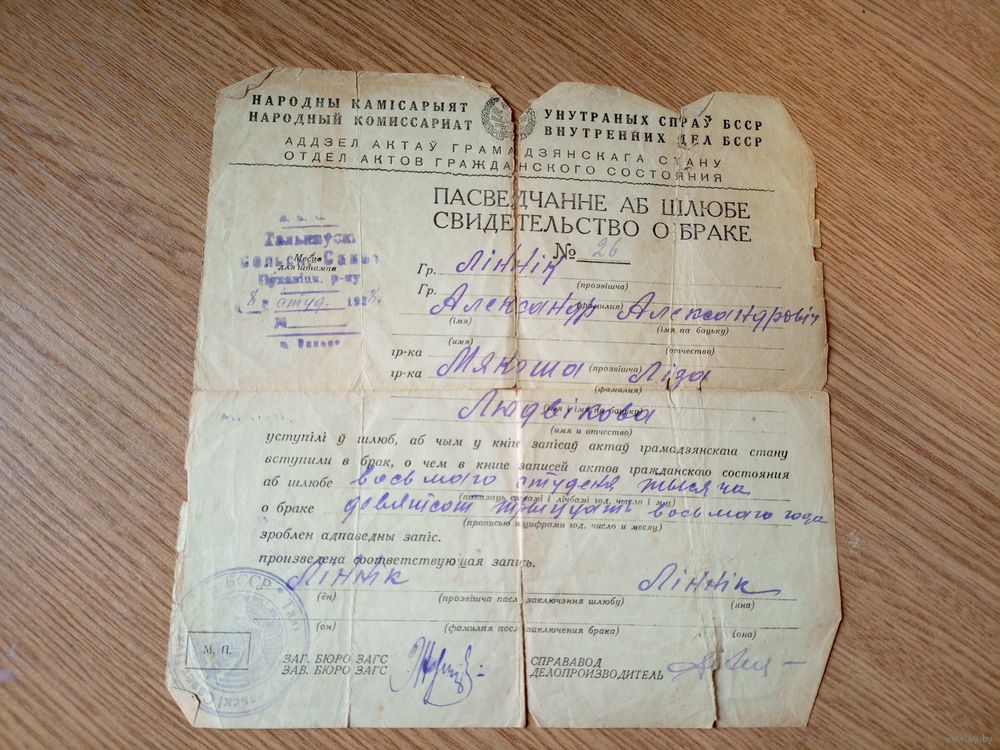 НАРОДНЫ КАМІСАРЫЯТ УНУТРАНЫХ СПРАЎ БССР
НАРОДНЫЙ КОМИССАРИАТ ВНУТРЕННИХ ДЕЛ БССР
АДДЗЕЛ АКТАЎ ГРАМАДЗЯНСКАГА СТАНУ
ОТДЕЛ АКТОВ ГРАЖДАНСКОГО СОСТОЯНИЯ
ПАСВЕДЧАННЕ АБ ШЛЮБЕ
СВИДЕТЕЛЬСТВО О БРАКЕ
№ 26
Месца
для штампа
8 студ.
№
Гр. Ліннік
(прозвішча)
Гр. Александр Александровіч
(фамилия)
(імя) (імя па бацьку)
(имя) (отчество)
гр-ка Мякоша Ліза
(прозвішча)
гр-ка
(фамилия)
Людвікова
(имя и отчество)
уступілі ў шлюб, аб чым у кніге запісаў актаў грамадзянскага стану
вступили в брак, о чем в книге записей актов гражданского состояния
аб шлюбе восьмого студеня тысяча
о браке девятсот трицать восьмого года
(прописью и цифрами год, число и месяц)
зроблен адпаведны запіс.
произведена соответствующая запись.
Ліннік Ліннік
(ён) (прозвішча пасля заключэння шлюбу) (яна)
(он) (фамилия после заключения брака) (она)
БССР
М. П.
ЗАГ. БЮРО ЗАГС СПРАВАВОД
ЗАВ. БЮРО ЗАГС ДЕЛОПРОИЗВОДИТЕЛЬ
www.ay.by